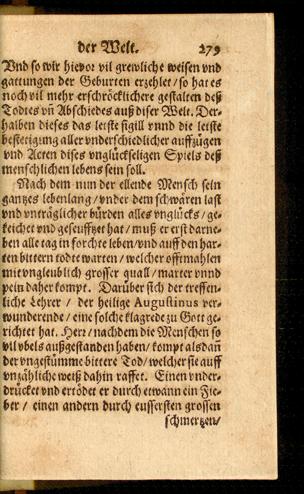 der Welt. 279
Vnd so wir hievor vil grewliche weisen vnd
gattungen der Geburten erzehlet / so hat es
noch vil mehr erschröcklichere gestalten deß
Todtes vn̄ Abschiedes auß diser Welt. Der-
halben dieses das letste sigill vnnd die letste
befestigung aller vnderschiedlicher auffzügen
vnd Acten dises vnglückseligen Spiels deß
menschlichen lebens sein soll.
Nach dem nun der ellende Mensch sein
gantzes lebenlang / vnder dem schwären last
vnd vnträglicher bürden alles vnglücks / ge-
keichet vnd geseufftzet hat / muß er erst darne-
ben alle tag in forchte leben / vnd auff den har-
ten bittern todte warten / welcher offtmahlen
mit vngleublich grosser quall / marter vnnd
pein daher kompt. Darüber sich der treffen-
liche Lehrer / der heilige Augustinus ver-
wunderende / eine solche klagrede zu Gott ge-
richtet hat. Herr / nachdem die Menschen so
vil vbels außgestanden haben / kompt alsdañ
der vngestümme bittere Tod / welcher sie auff
vnzähliche weiß dahin raffet. Einen vnder-
drücket vnd ertödet er durch etwann ein Fie-
ber / einen andern durch eussersten grossen
schmertzen /